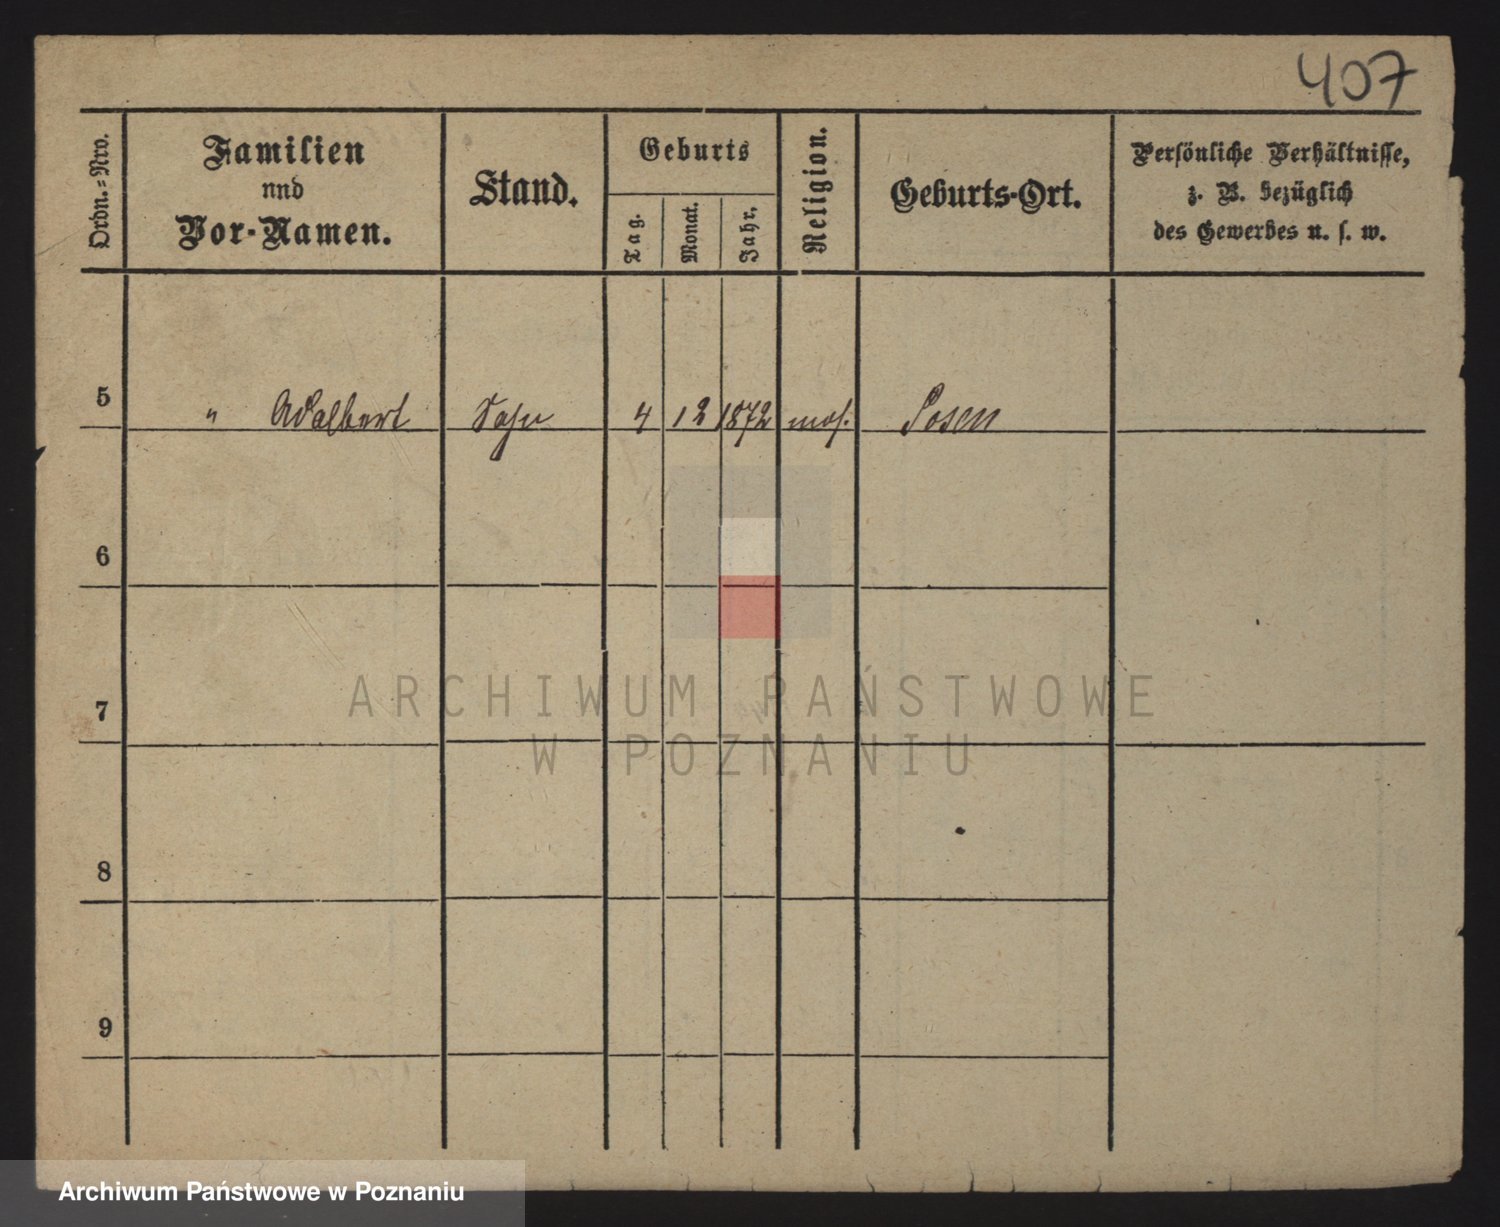 407
Ordn.=Nro.
Familien
nnd
Vor-Namen.
Stand.
Geburts
Tag.
Monat.
Jahr.
Religion.
Geburts-Ort.
Persönliche Verhältnisse,
z. B. bezüglich
des Gewerbes u. s. w.
5 " Adalbert Sohn 4 12 1872 mos. Posen
6
7
8
9
ARCHIWUM PAŃSTWOWE
W POZNANIU
Archiwum Państwowe w Poznaniu